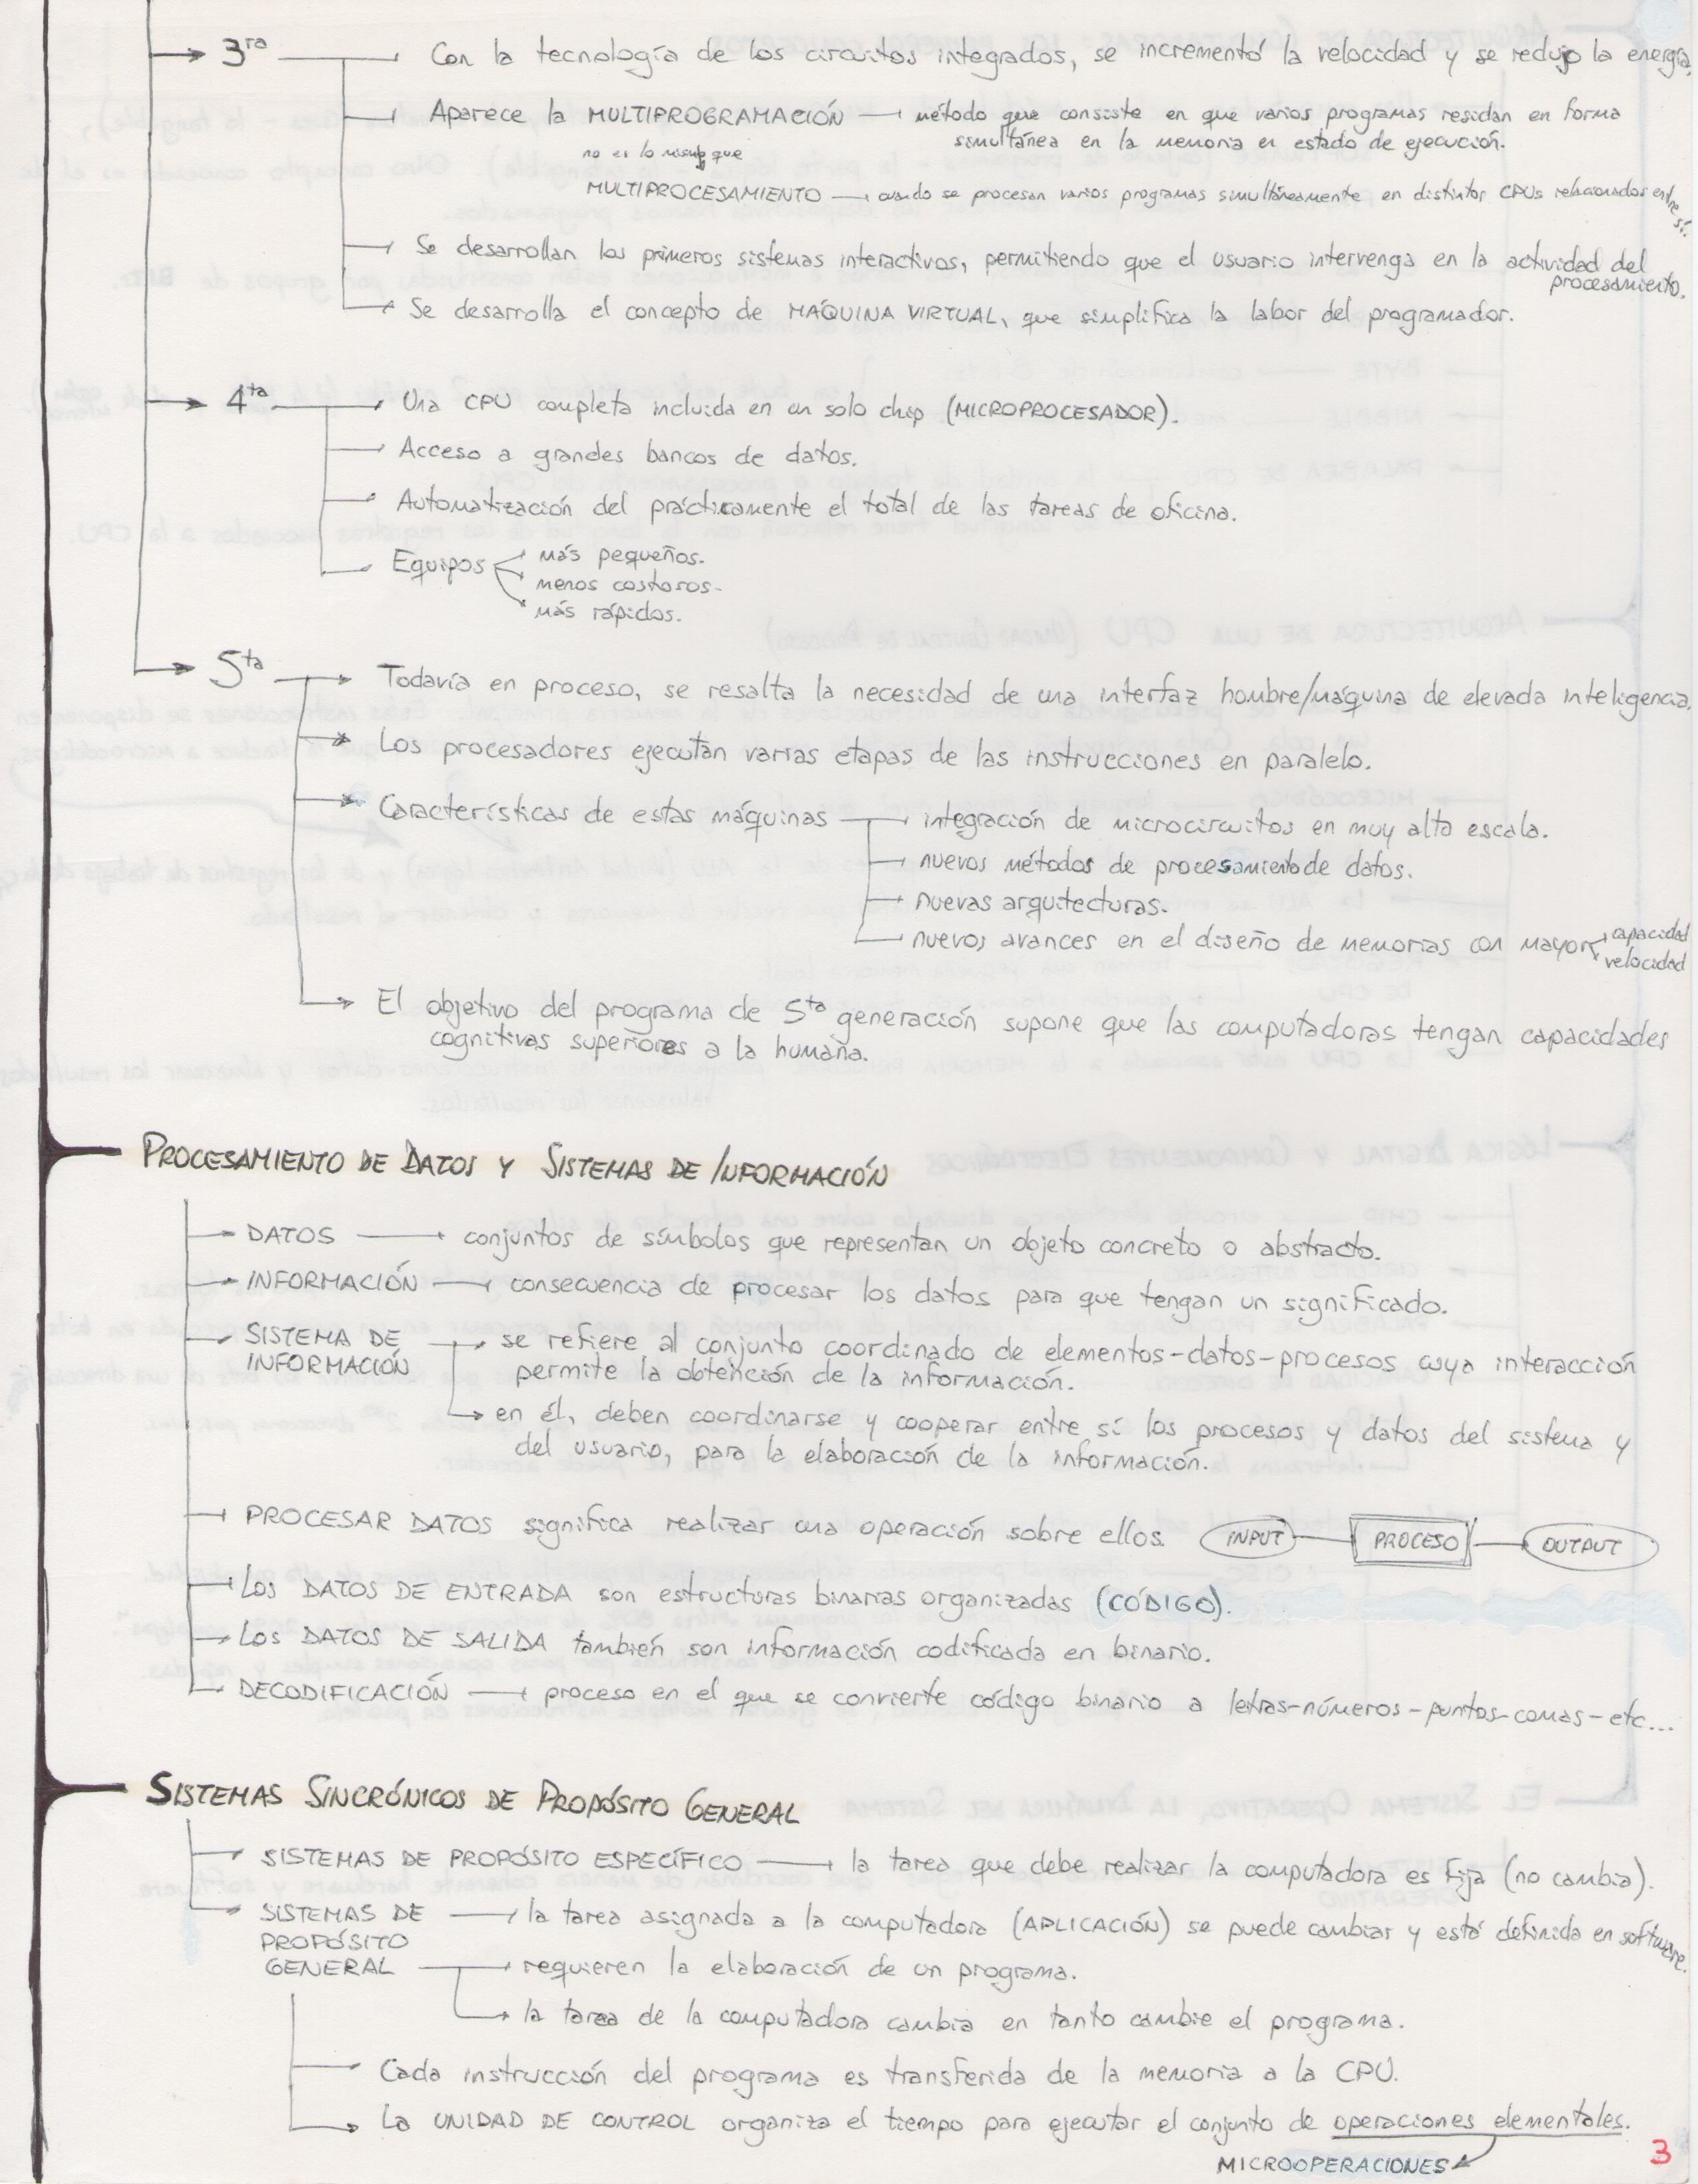 3ra Con la tecnología de los circuitos integrados, se incrementó la velocidad y se redujo la energía.
Aparece la MULTIPROGRAMACIÓN método que consiste en que varios programas residan en forma
simultánea en la memoria en estado de ejecución.
no es lo mismo que
MULTIPROCESAMIENTO cuando se procesan varios programas simultáneamente en distintos CPUs relacionados entre sí.
Se desarrollan los primeros sistemas interactivos, permitiendo que el usuario intervenga en la actividad del
procesamiento.
Se desarrolla el concepto de MÁQUINA VIRTUAL, que simplifica la labor del programador.
4ta Una CPU completa incluida en un solo chip (MICROPROCESADOR).
Acceso a grandes bancos de datos.
Automatización del prácticamente el total de las tareas de oficina.
Equipos más pequeños.
menos costosos.
más rápidos.
5ta Todavía en proceso, se resalta la necesidad de una interfaz hombre/máquina de elevada inteligencia.
Los procesadores ejecutan varias etapas de las instrucciones en paralelo.
Características de estas máquinas integración de microcircuitos en muy alta escala.
nuevos métodos de procesamiento de datos.
nuevas arquitecturas.
nuevos avances en el diseño de memorias con mayor capacidad
velocidad
El objetivo del programa de 5ta generación supone que las computadoras tengan capacidades
cognitivas superiores a la humana.
PROCESAMIENTO DE DATOS Y SISTEMAS DE INFORMACIÓN
DATOS conjuntos de símbolos que representan un objeto concreto o abstracto.
INFORMACIÓN consecuencia de procesar los datos para que tengan un significado.
SISTEMA DE se refiere al conjunto coordinado de elementos-datos-procesos cuya interacción
INFORMACIÓN permite la obtención de la información.
en él, deben coordinarse y cooperar entre sí los procesos y datos del sistema y
del usuario, para la elaboración de la información.
PROCESAR DATOS significa realizar una operación sobre ellos. INPUT PROCESO OUTPUT
Los DATOS DE ENTRADA son estructuras binarias organizadas (CÓDIGO).
Los DATOS DE SALIDA también son información codificada en binario.
DECODIFICACIÓN proceso en el que se convierte código binario a letras-números-puntos-comas-etc...
SISTEMAS SINCRÓNICOS DE PROPÓSITO GENERAL
SISTEMAS DE PROPÓSITO ESPECÍFICO la tarea que debe realizar la computadora es fija (no cambia).
SISTEMAS DE la tarea asignada a la computadora (APLICACIÓN) se puede cambiar y está definida en software.
PROPÓSITO
GENERAL requieren la elaboración de un programa.
la tarea de la computadora cambia en tanto cambie el programa.
Cada instrucción del programa es transferida de la memoria a la CPU.
La UNIDAD DE CONTROL organiza el tiempo para ejecutar el conjunto de operaciones elementales.
MICROOPERACIONES
3